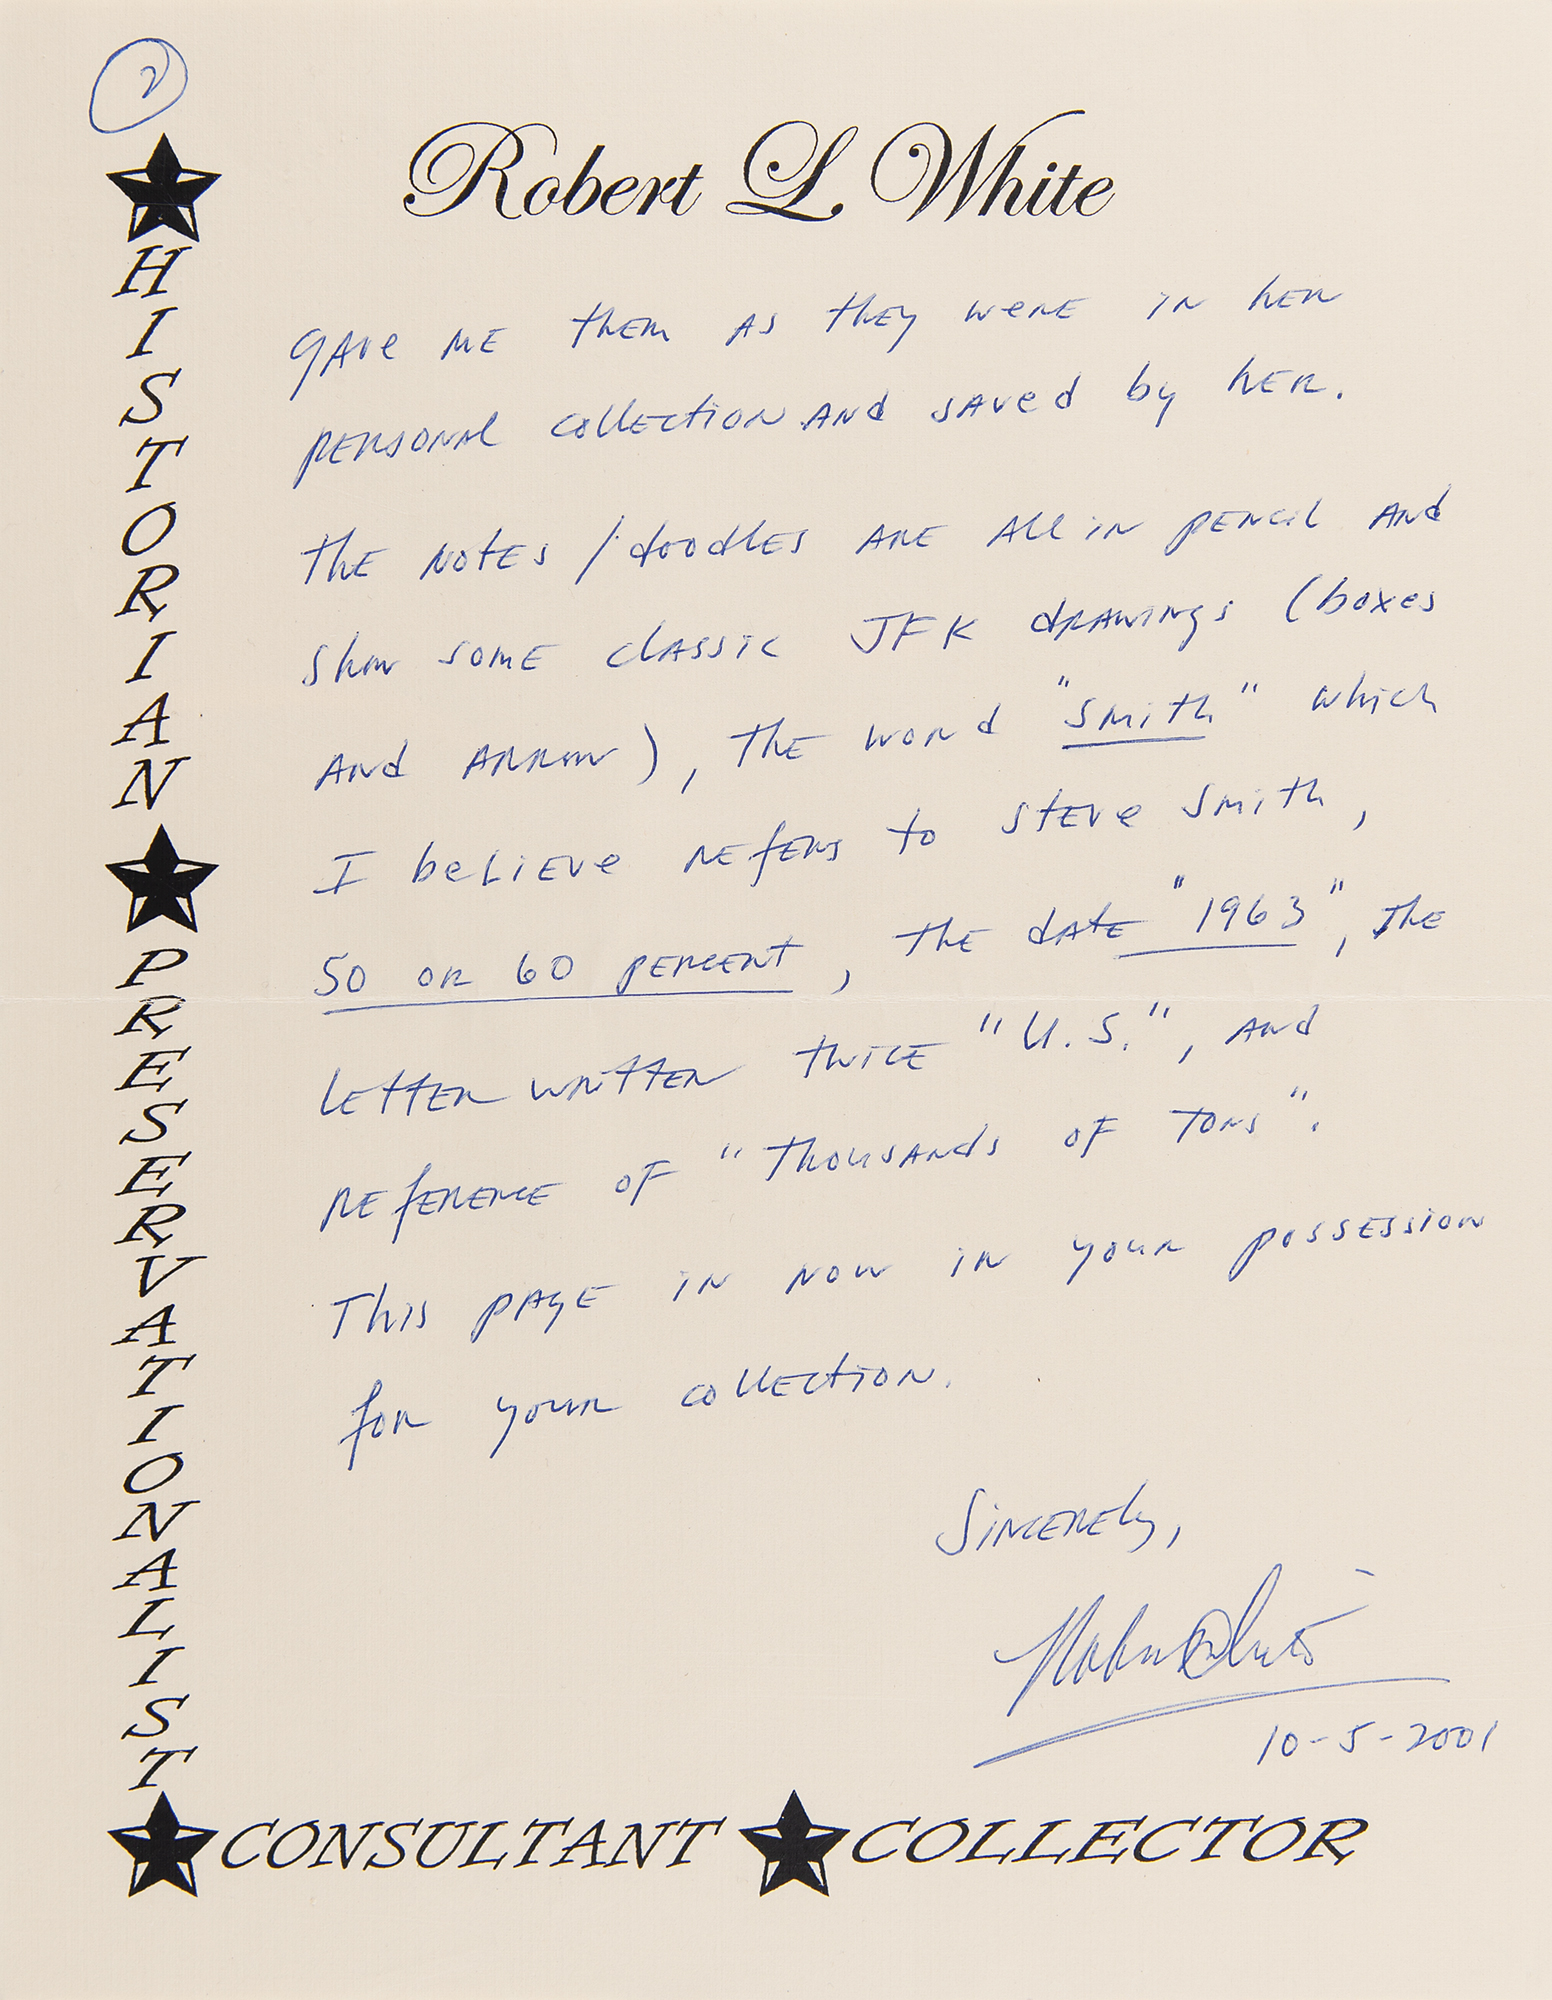 2
Robert L White
HISTORIAN
PRESERVATIONALIST
gave me them as they were in her
personal collection and saved by her.
The notes/doodles are all in pencil and
show some classic JFK drawings (boxes
and arrow), the word "Smith" which
I believe refers to Steve Smith,
50 or 60 percent, the date "1963", the
letter written twice "U.S.", and
reference of "thousands of tons".
This page in now in your possession
for your collection.
Sincerely,
Robert White
10-5-2001
CONSULTANT COLLECTOR